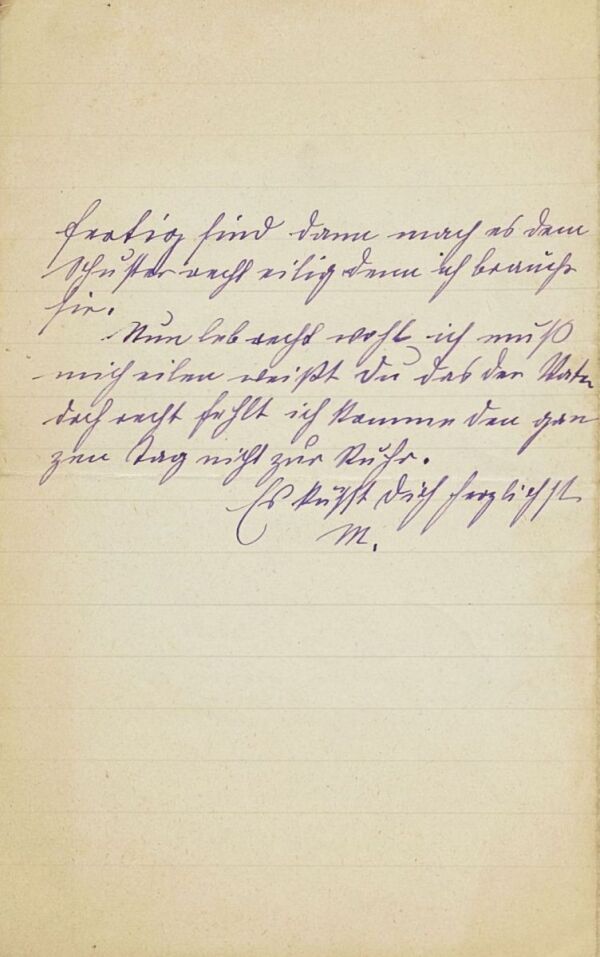 fertig sind dann mach es dem
Schuster recht eilig denn ich brauche
sie.
Nun leb recht wohl ich muß
mich eilen weißt Du das der Vater
doch recht fehlt ich komme den gan
zen Tag nicht zur Ruhe.
Es küsst Dich herzlichst
M.